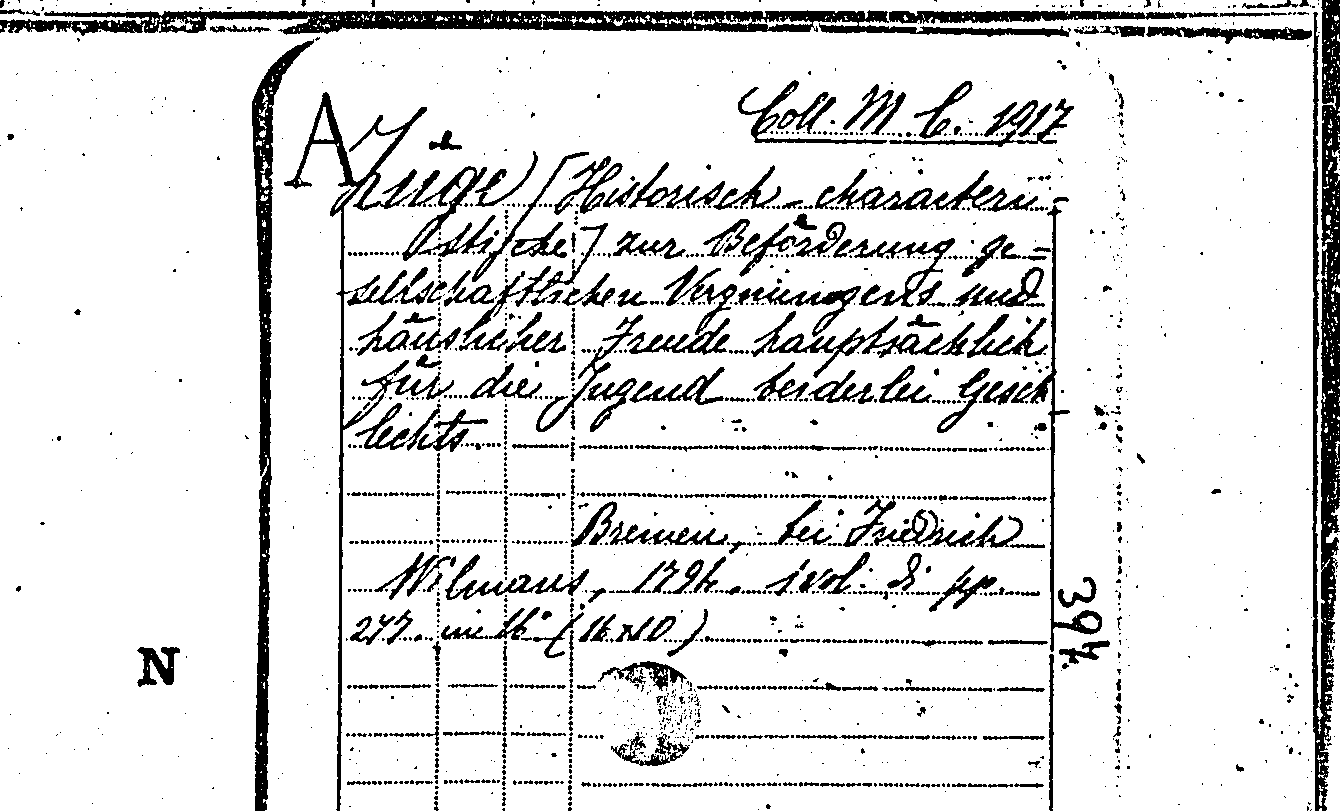 Coll. M. C. 1917
A
Züge) [Historisch-characteri-
stische] zur Beförderung ge=
sellschaftlichen Vergnüngens und
häuslicher Freude hauptsächlich
für die Jugend beiderlei Gesch
lechts.
Bremen, bei Friedrich
Wilmans, 1794. 1 vol. di pp.
277. in 16° (16x10).
394.
N